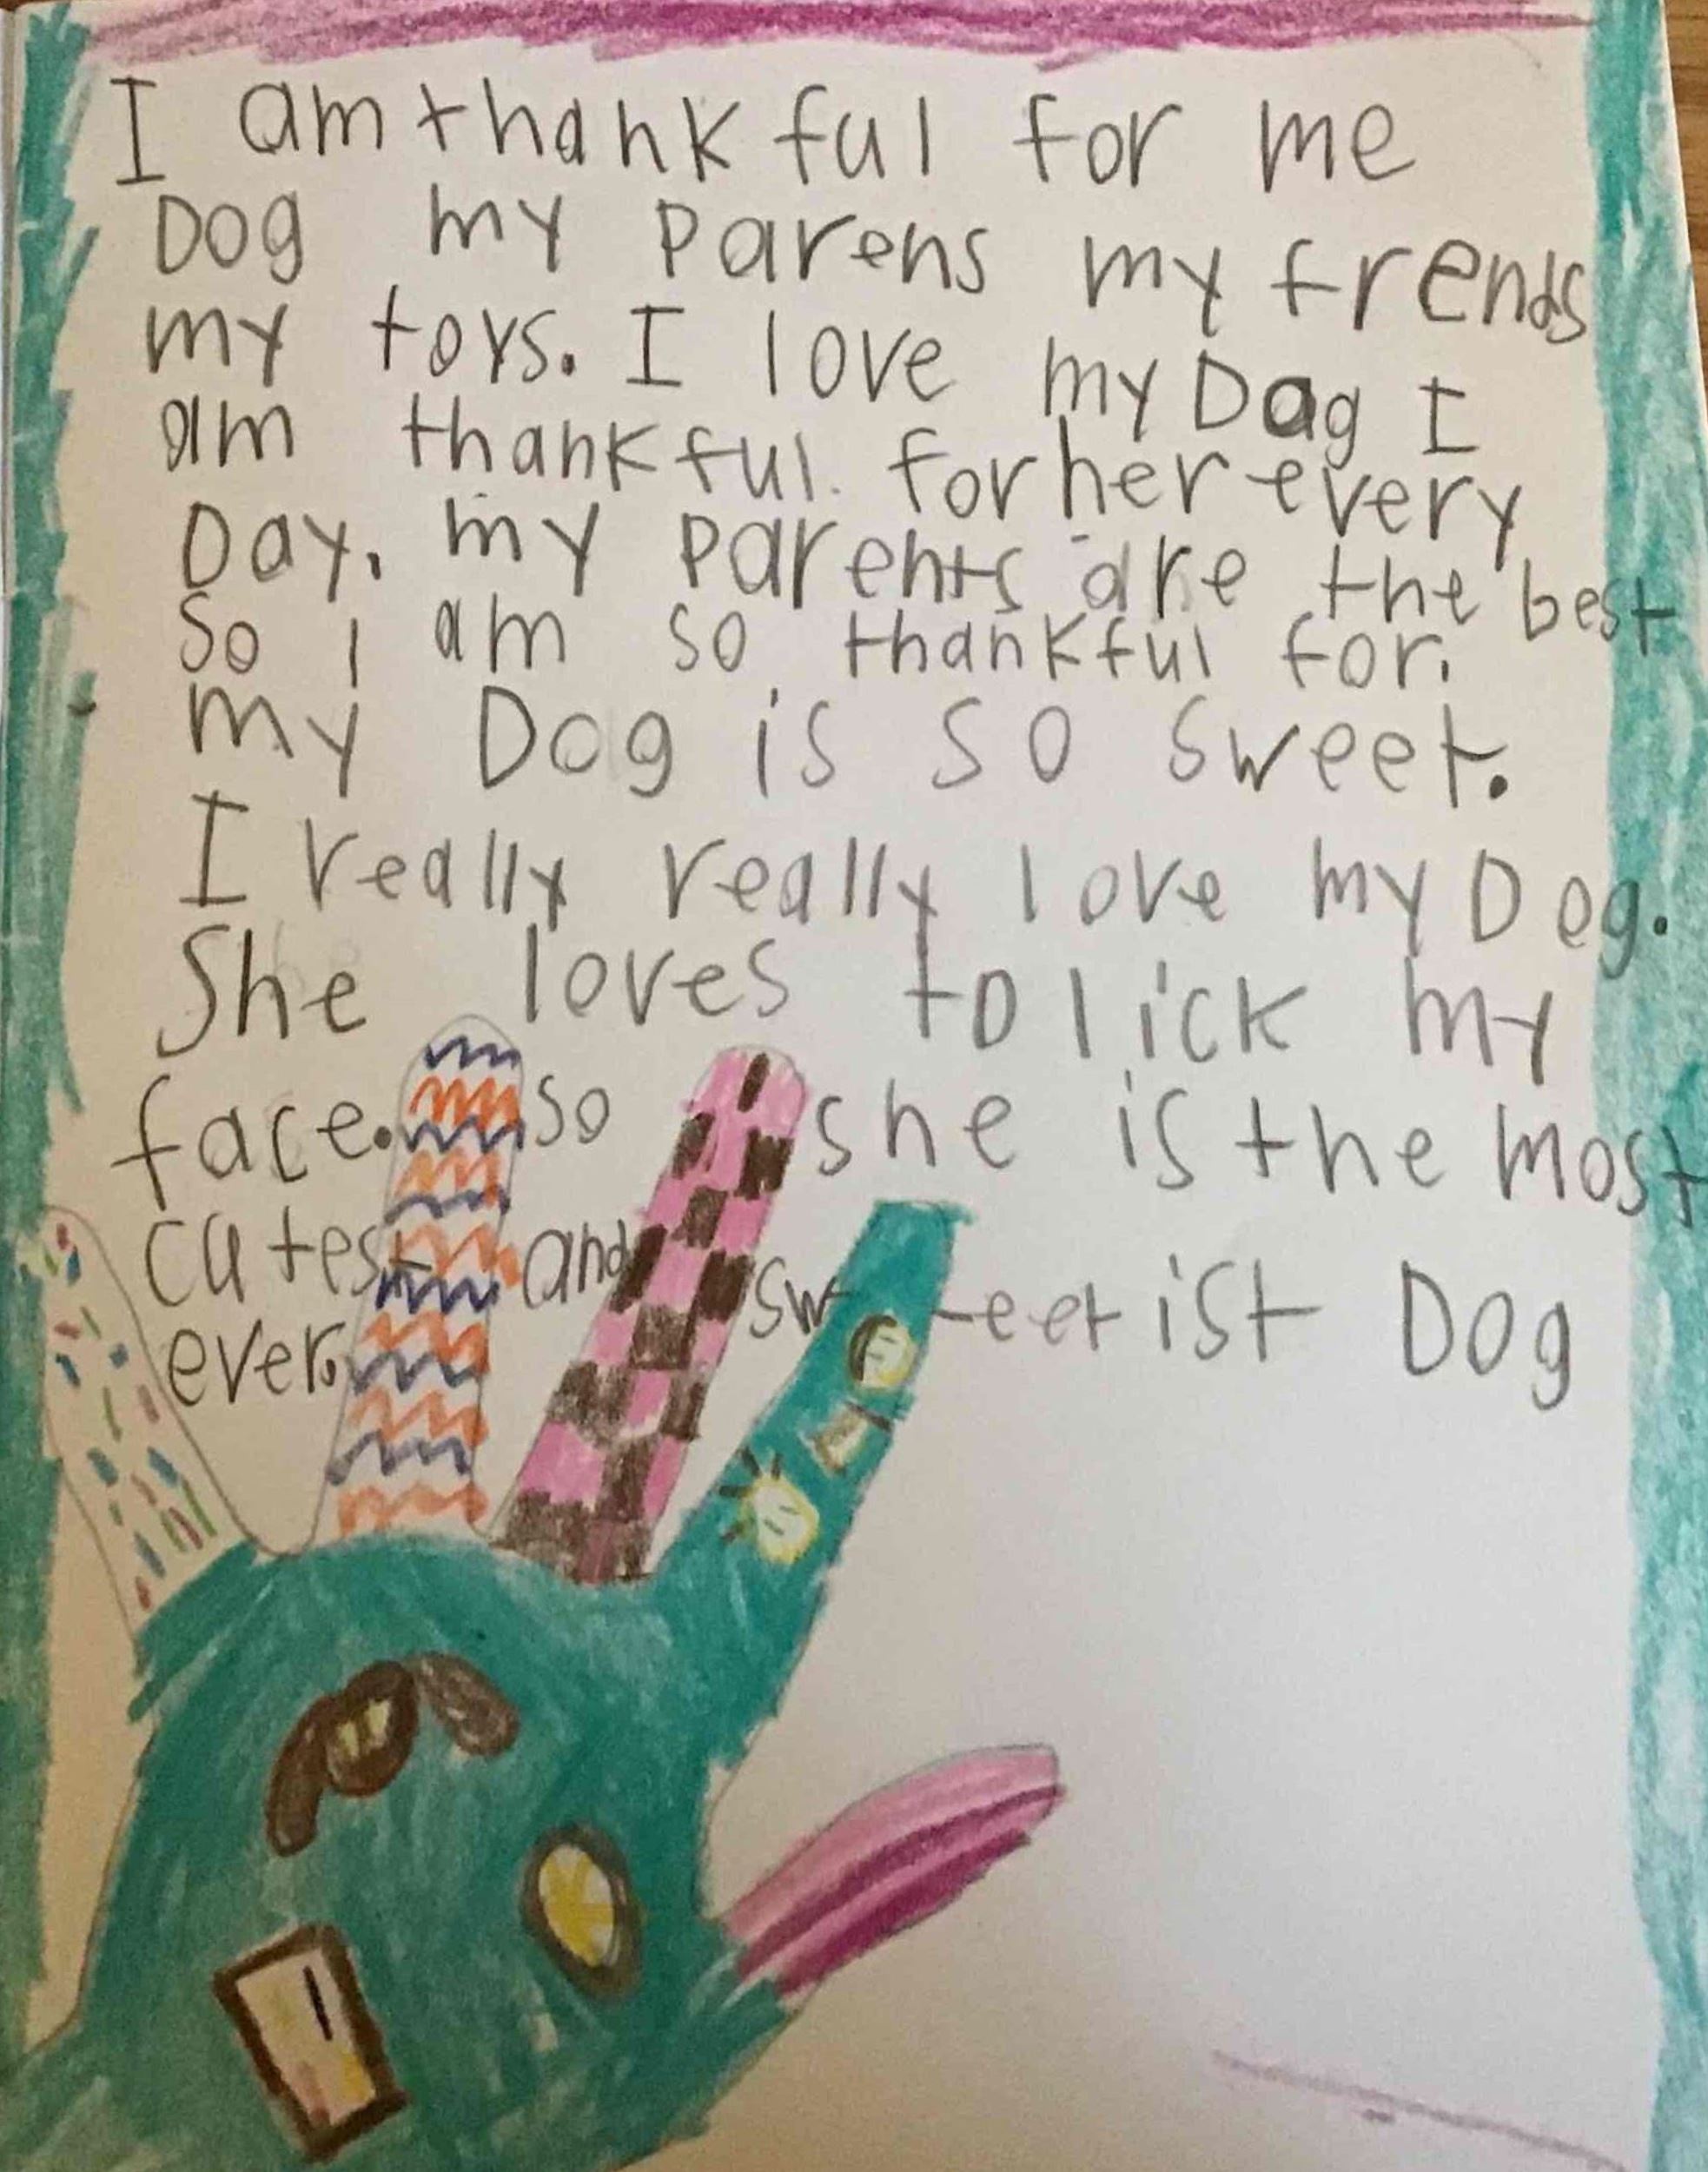 I am thankful for me
Dog my Parens my frends
my toys. I love my Dag I
am thankful for her every
Day. my Parents are the best
So I am so thankful for.
my Dog is so sweet.
I really really love my Dog.
She loves to lick my
face. so she is the most
cutest and sweetist Dog
ever.